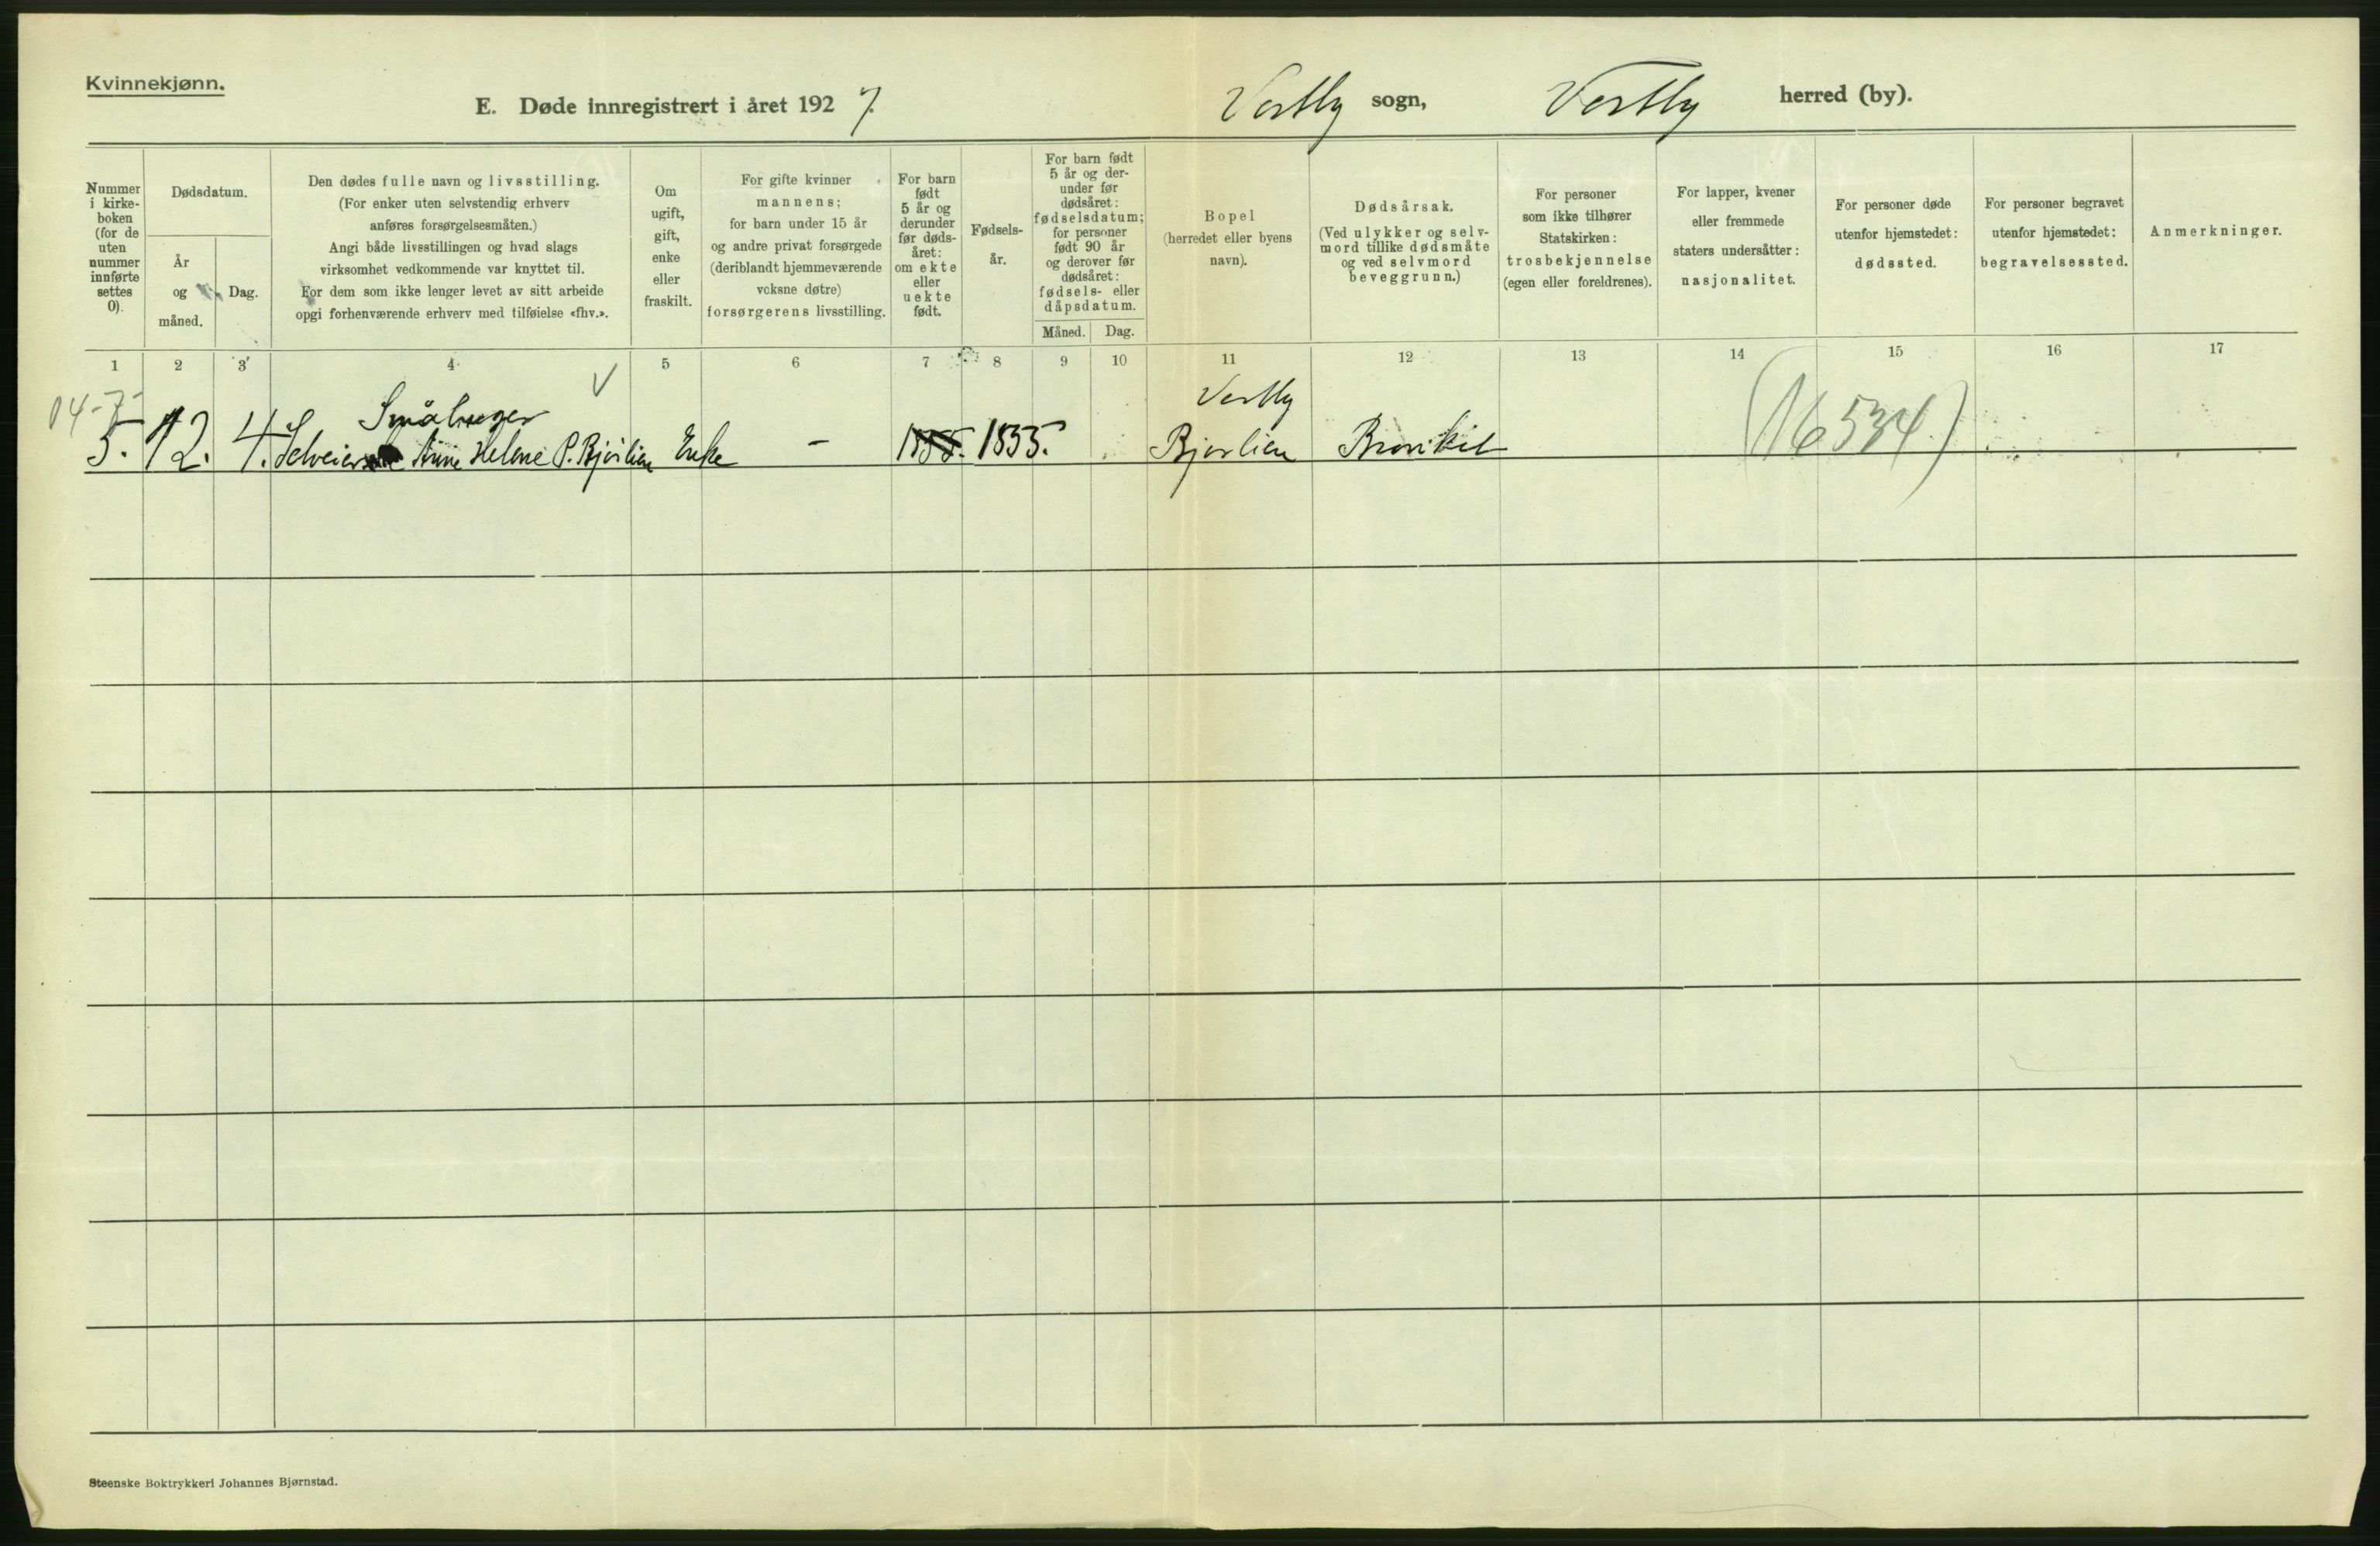 Kvinnekjønn.
E. Døde innregistrert i året 1927. Vestby sogn, Vestby herred (by).
Nummer i kirke-
boken
(for de
uten
nummer
innførte
settes
0).
Dødsdatum.
År
og
måned.
Dag.
Den dødes fulle navn og livsstilling.
(For enker uten selvstendig erhverv
anføres forsørgelsesmåten.)
Angi både livsstillingen og hvad slags
virksomhet vedkommende var knyttet til.
For dem som ikke lenger levet av sitt arbeide
opgi forhenværende erhverv med tilføielse «fhv.».
Om
ugift,
gift,
enke
eller
fraskilt.
For gifte kvinner
mannens;
for barn under 15 år
og andre privat forsørgede
(deriblandt hjemmeværende
voksne døtre)
forsørgerens livsstilling.
For barn
født
5 år og
derunder
før døds-
året:
om ekte
eller
uekte
født.
Fødsels-
år.
For barn født
5 år og der-
under før
dødsåret:
fødselsdatum;
for personer
født 90 år
og derover før
dødsåret:
fødsels- eller
dåpsdatum.
Måned. Dag.
Bopel
(herredet eller byens
navn).
Dødsårsak.
(Ved ulykker og selv-
mord tillike dødsmåte
og ved selvmord
beveggrunn.)
For personer
som ikke tilhører
Statskirken:
trosbekjennelse
(egen eller foreldrenes).
For lapper, kvener
eller fremmede
staters undersåtter:
nasjonalitet.
For personer døde
utenfor hjemstedet:
dødssted.
For personer begravet
utenfor hjemstedet:
begravelsessted.
Anmerkninger.
1 2 3 4 5 6 7 8 9 10 11 12 13 14 15 16 17
04-7-
Småbruger
Vestby
5. 12. 4. Selveier Anne Helene P. Bjørlien Enke – 1855. 1835. Bjørlien Bronkit (16534)
Steenske Boktrykkeri Johannes Bjørnstad.